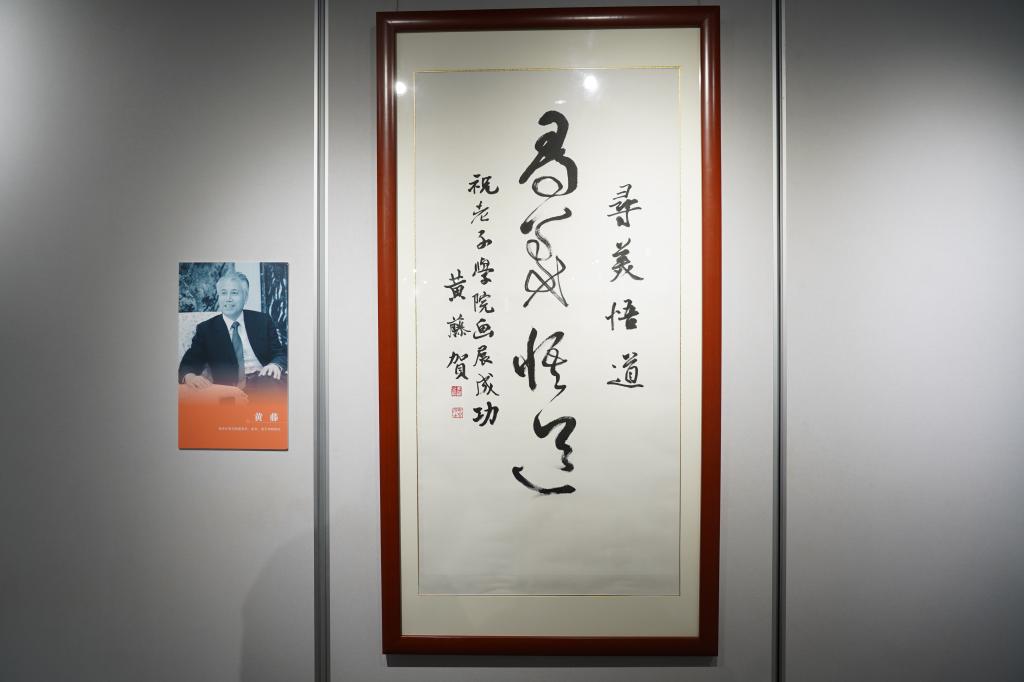 尋美悟道
尋美悟道
祝老子學院画展成功
黄藤賀
黄 藤